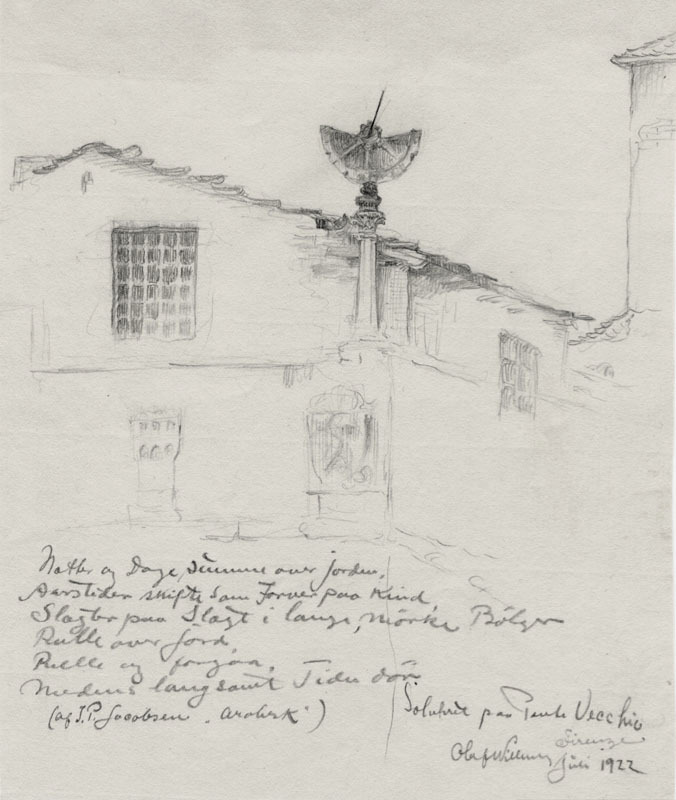 Nætter og Dage, summe over jorden,
Aarstider skifte som Farver paa Kind
Slagter paa Slagt i lange, mörke Bölger
Rulle over jord,
Rulle og forgaa,
Medens langsomt Tiden dör.
(af J.P. Jacobsen "Arabesk")
Soluhret paa Ponte Vecchio
Firenze
Juli 1922